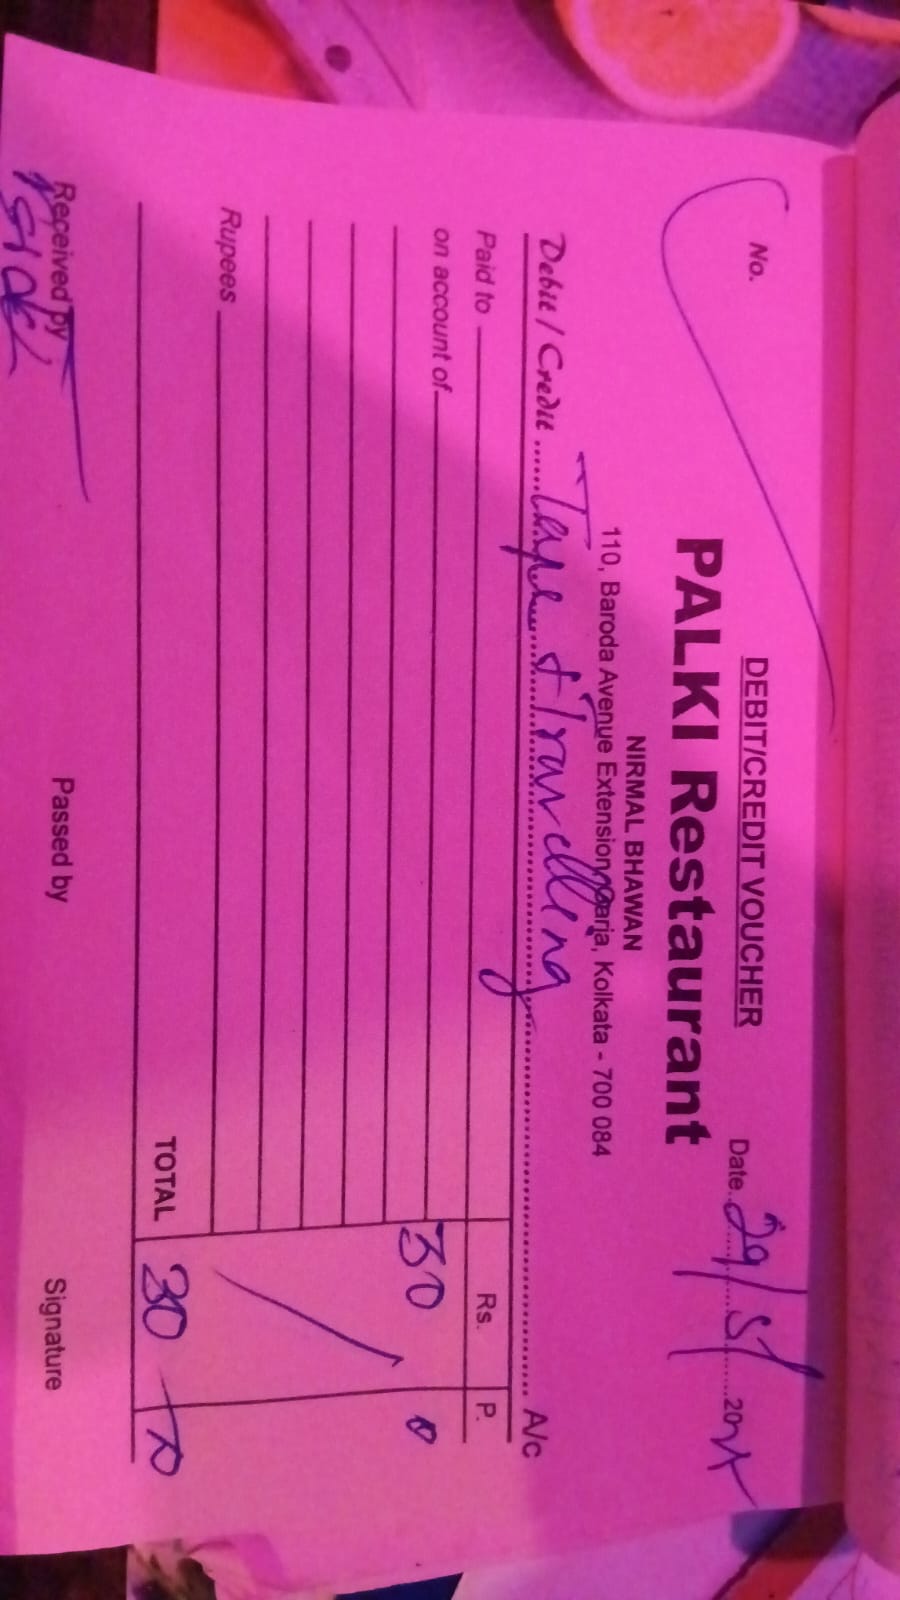 DEBIT/CREDIT VOUCHER
No. Date. 29/5/ 20
PALKI Restaurant
NIRMAL BHAWAN
110, Baroda Avenue Extension, Garia, Kolkata - 700 084
Debit / Credit Travelling A/c
Paid to Rs. P.
on account of 30 0
Rupees
TOTAL 30
Received by Passed by Signature